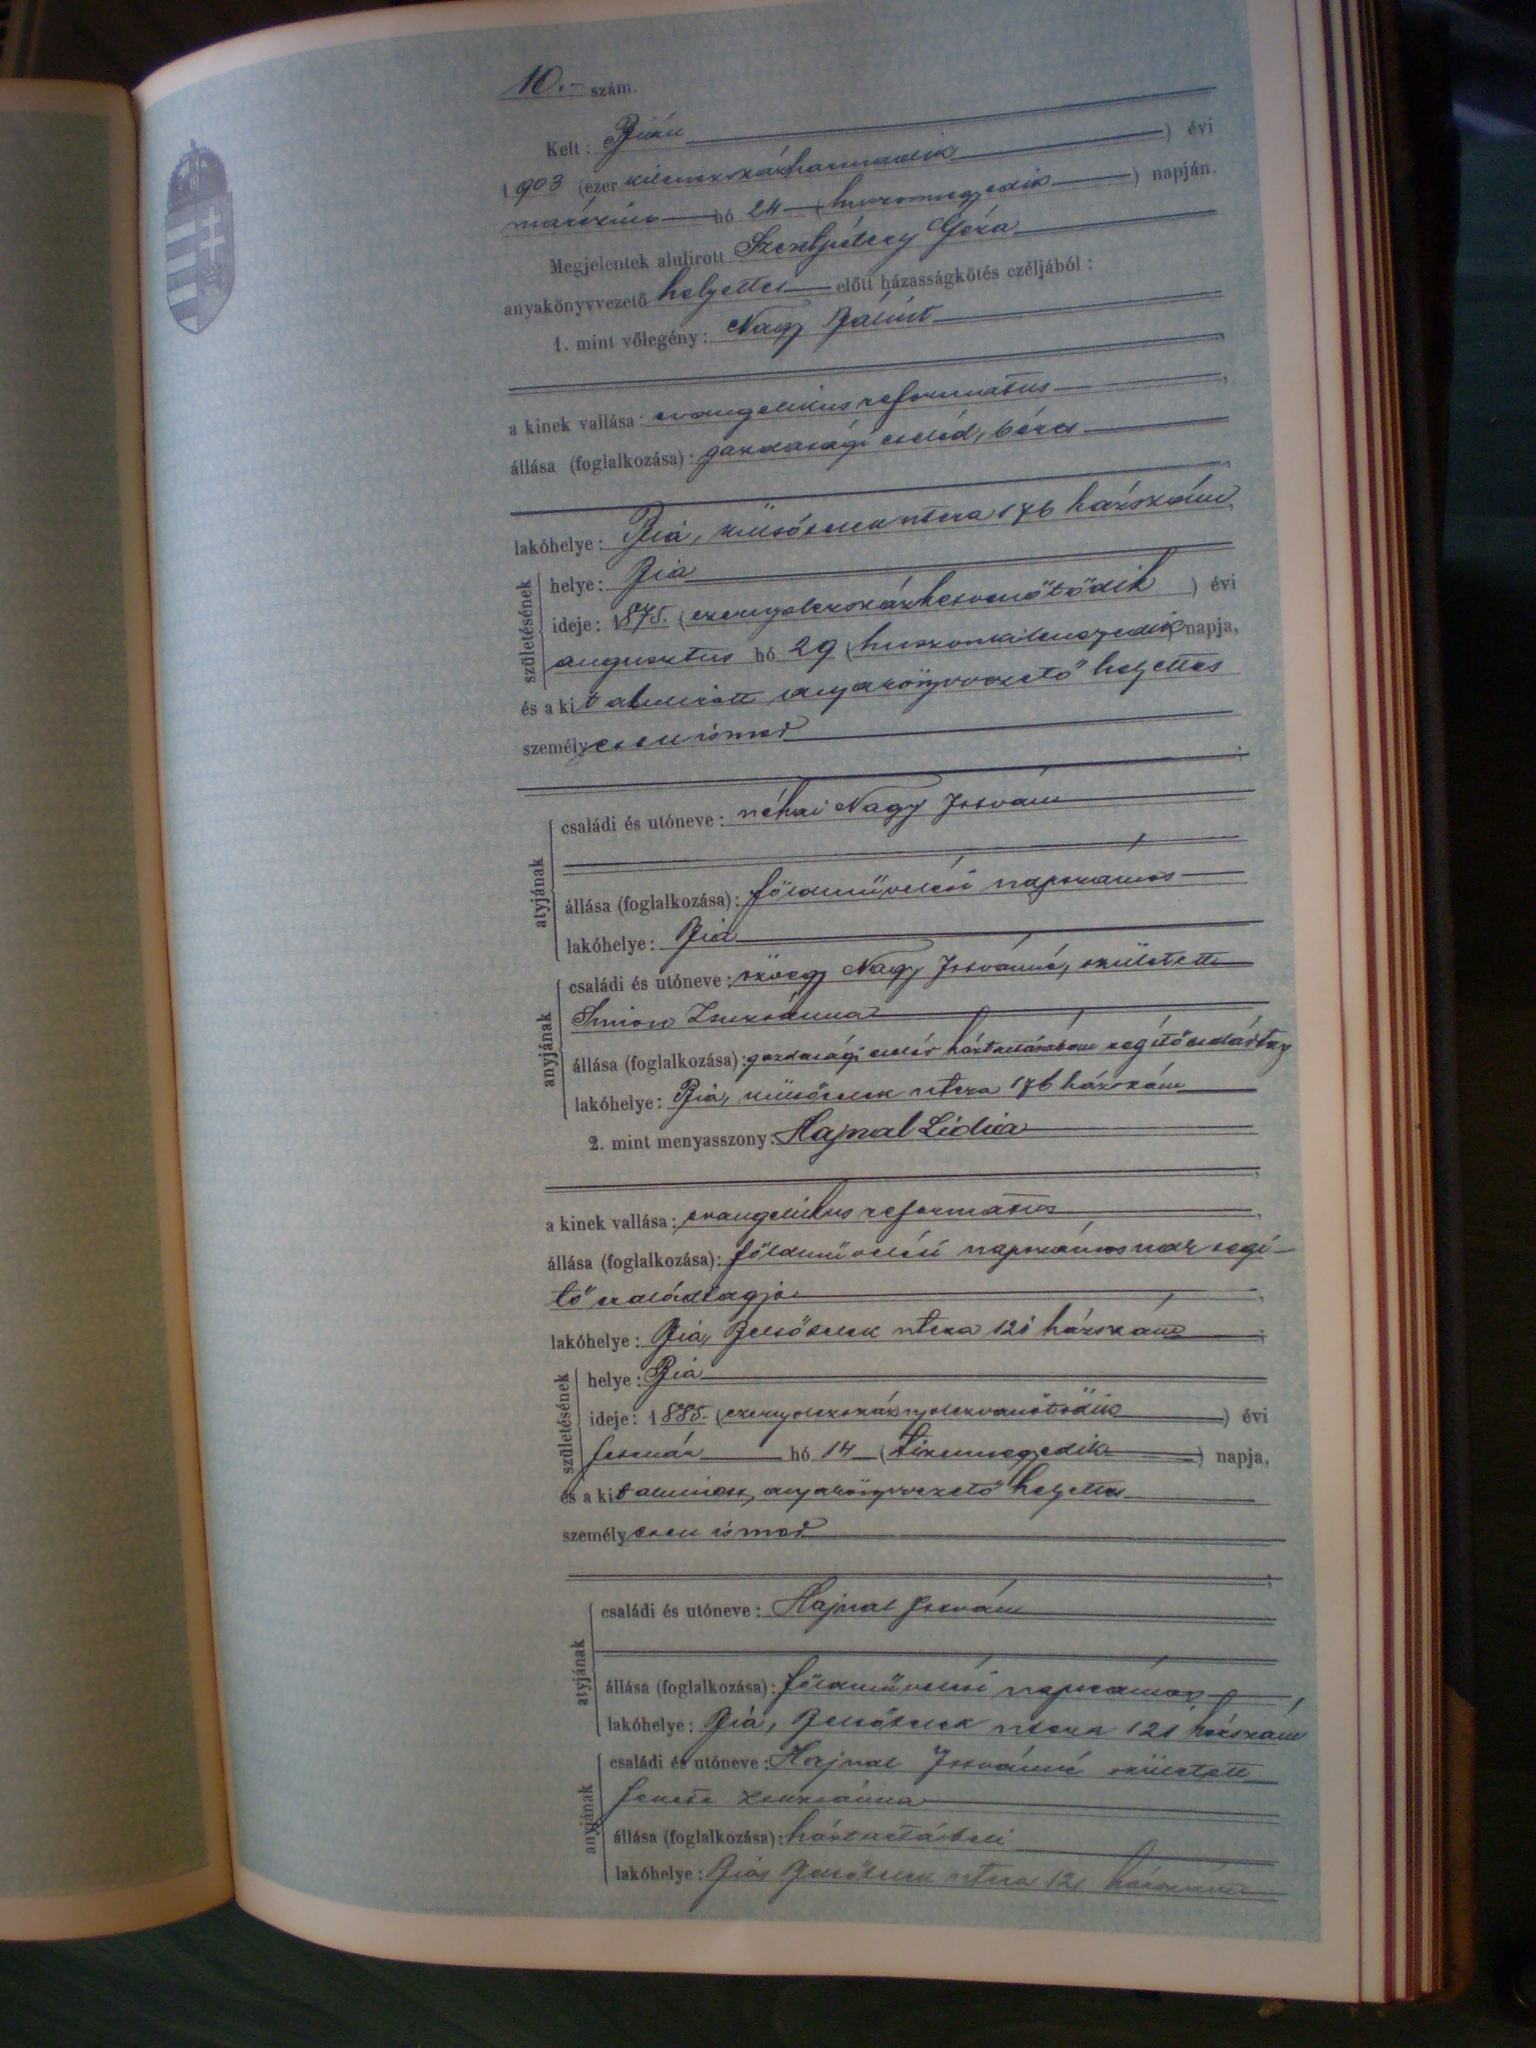 10.- szám.
Kelt: Bián
1903 (ezerkilenczszázharmadik) évi
márczius hó 24 (huszonnegyedik) napján.
Megjelentek alulirott Szentpétery Géza
anyakönyvvezető helyettes előtt házasságkötés czéljából:
1. mint vőlegény: Nagy Bálint
a kinek vallása: evangelikus református,
állása (foglalkozása): gazdasági cseléd, béres
lakóhelye: Bia, külsőtelek utcza 176 házszám,
születésének
helye: Bia
ideje: 1875. (ezernyolczszázhetvenötödik) évi
augusztus hó 29 (huszonkilenczedik napja,
és a kit alulirott anyakönyvvezető helyettes
személyesen ismer
;
atyjának
családi és utóneve: néhai Nagy István
állása (foglalkozása): földművelési napszámos
lakóhelye: Bia
anyjának
családi és utóneve: özvegy Nagy Istvánné, született
Simon Zsuzsánna
állása (foglalkozása): gazdasági cseléd háztartásában segítő családtag
lakóhelye: Bia, külsőtelek utcza 176 házszám
2. mint menyasszony: Hajnal Lidia
,
a kinek vallása: evangelikus református,
állása (foglalkozása): földművelési napszámosnak segí-
tő családtagja,
lakóhelye: Bia, Belsőtelek utcza 121 házszám;
születésének
helye: Bia
ideje: 1885. (ezernyolczszáznyolczvanötödik) évi
február hó 14 (tizennegyedik) napja,
és a kit alulirott anyakönyvvezető helyettes
személyesen ismer
;
atyjának
családi és utóneve: Hajnal István
állása (foglalkozása): földművelési napszámos,
lakóhelye: Bia, Belsőtelek utcza 121 házszám
anyjának
családi és utóneve: Hajnal Istvánné született
Zsuzsánna
állása (foglalkozása): háztartásbeli
lakóhelye: Bia, Belsőtelek utcza 121 házszám